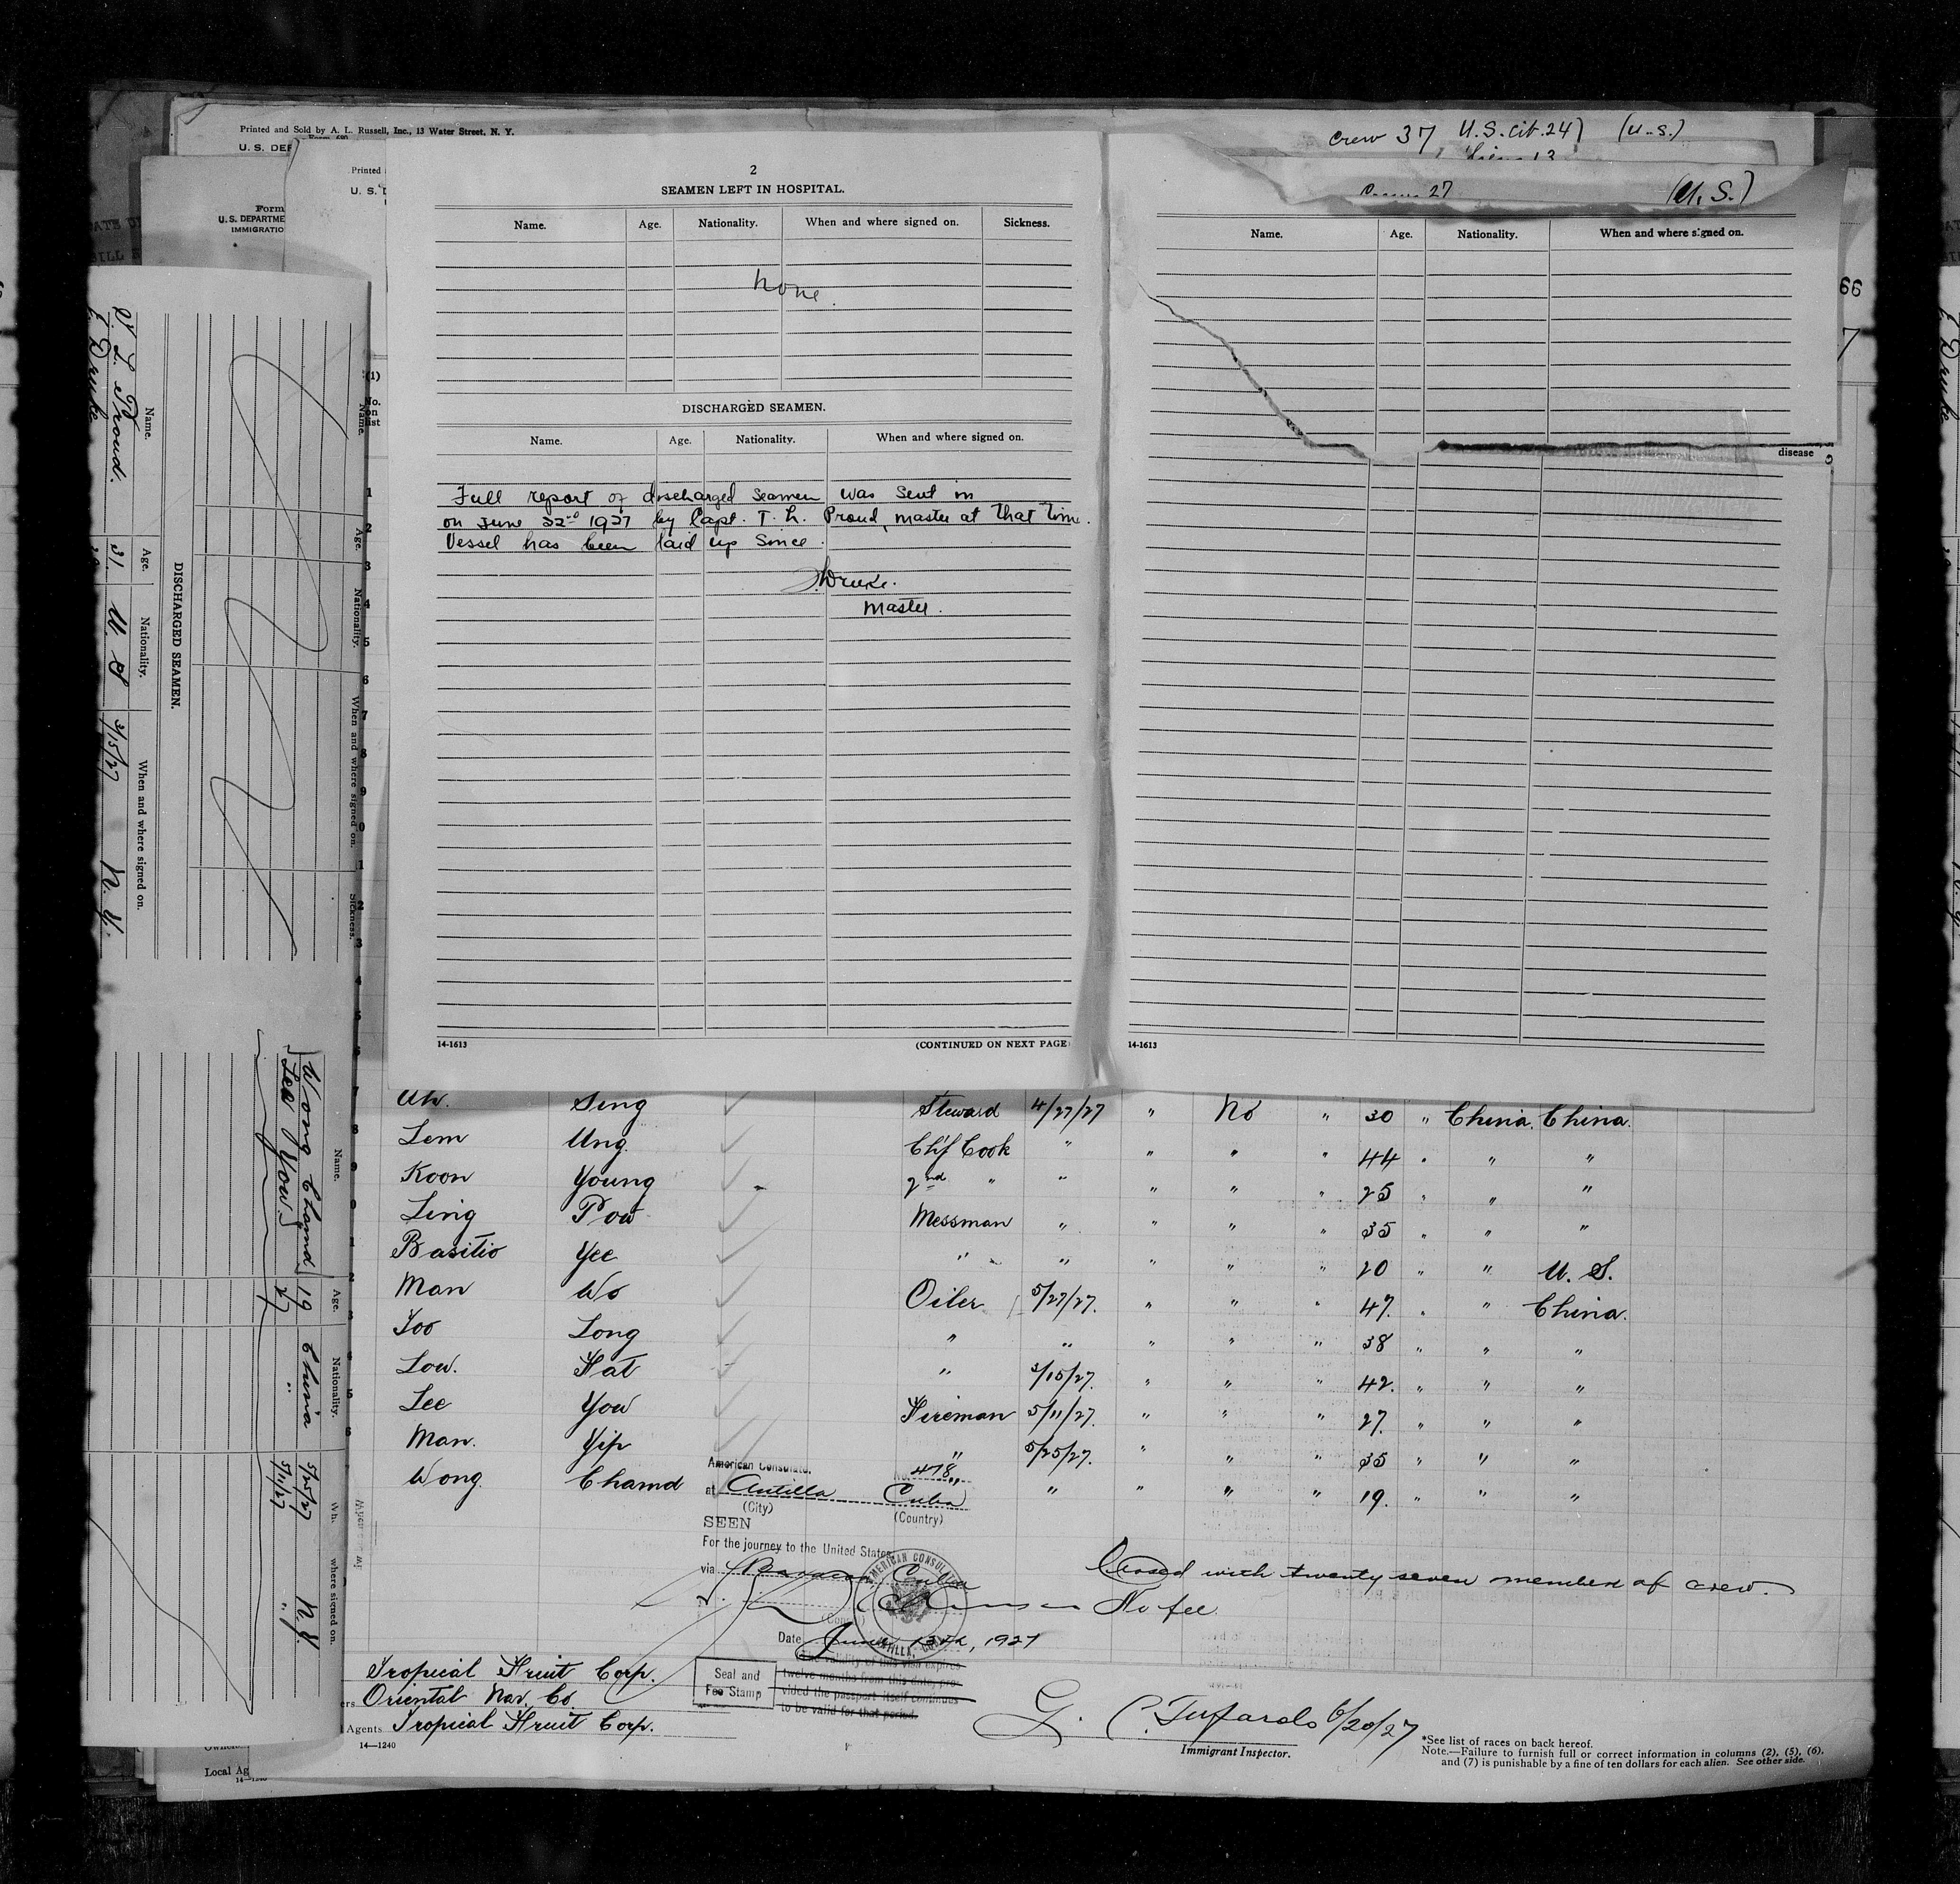 Printed and Sold by A. L. Russell, Inc., 13 Water Street, N. Y.
U. S. DEP
Crew 37 U.S. cit. 24 (U.S.)
Printed
U. S. D
Form
U. S. DEPARTME
IMMIGRATIO
27 (U.S.)
2
SEAMEN LEFT IN HOSPITAL.
Name. Age. Nationality. When and where signed on. Sickness.
None.
DISCHARGED SEAMEN.
Name. Age. Nationality. When and where signed on.
Full report of discharged seamen was sent in
on June 22nd 1927 by Capt. T. L. Proud, master at that time.
Vessel has been laid up since.
J. Druke.
Master.
14-1613 (CONTINUED ON NEXT PAGE
Name. Age. Nationality. When and where signed on.
disease
14-1613
66
7
(1)
No.
on
list
Name. Age. Nationality. When and where signed on. Sickness.
DISCHARGED SEAMEN.
Name. Age. Nationality. When and where signed on.
T L. Proud. 31. U. S 3/15/27 N. Y.
J. Druke
Name. Age. Nationality. Wh. where signed on.
Wong Chamd 19 China 5/25/27 N. Y.
Lee You 27 " 5/11/27 "
Ah. Sing Steward 4/27/27 " No " 30 " China. China.
Lem Ung. Chf Cook " " " " 44 " " "
Koon Young 2nd " " " " " 25 " " "
Ling Pow Messman " " " " 35 " " "
Basitio Yee " " " " " 20 " " U. S.
Man Wo Oiler 5/27/27. " " " 47. " " China.
Foo Long " " " " " 38 " " "
Low. Fat " 3/15/27. " " " 42. " " "
Lee You Fireman 5/11/27. " " " 27. " " "
Man. Yip " 5/25/27. " " " 35 " " "
Wong. Chamd " " " " " 19. " " "
American Consulate, No. 478
at Antilla Cuba
(City) (Country)
SEEN
For the journey to the United States
via Cuba
AMERICAN CONSULA
Closed with twenty seven members of crew.
No fee.
(Consul)
Date June 13th, 1927
The validity of this visa expires
twelve months from this date, pro-
vided the passport itself continues
to be valid for that period.
Seal and
Fee Stamp
Tropical Fruit Corp.
ers Oriental Nav. Co.
Agents Tropical Fruit Corp.
14—1240
G. 6/20/27
Immigrant Inspector.
*See list of races on back hereof.
Note.—Failure to furnish full or correct information in columns (2), (5), (6),
and (7) is punishable by a fine of ten dollars for each alien. See other side.
Local Ag